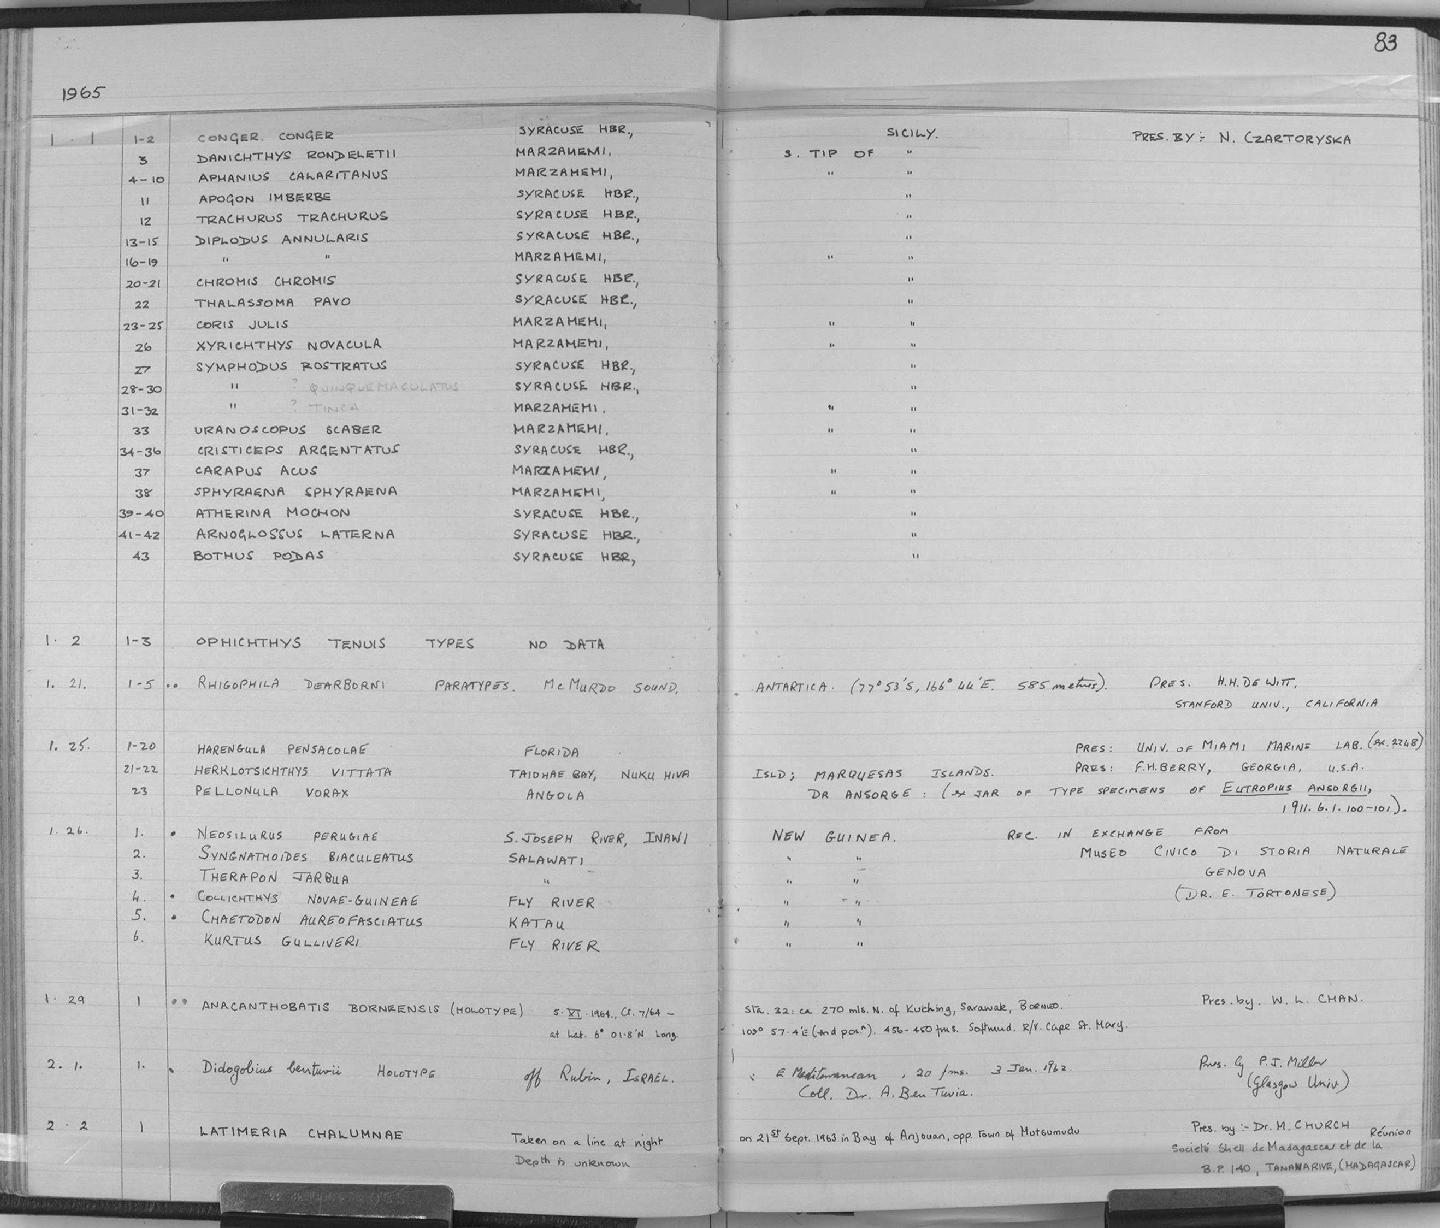 83
1965
1 . 1 1-2 CONGER CONGER SYRACUSE HBR., SICILY. PRES. BY :- N. CZARTORYSKA
3 DANICHTHYS RONDELETII MARZAMEMI, S. TIP OF "
4-10 APHANIUS CALARITANUS MARZAMEMI, " "
11 APOGON IMBERBE SYRACUSE HBR., "
12 TRACHURUS TRACHURUS SYRACUSE HBR., "
13-15 DIPLODUS ANNULARIS SYRACUSE HBR., "
16-19 " " MARZAMEMI, " "
20-21 CHROMIS CHROMIS SYRACUSE HBR., "
22 THALASSOMA PAVO SYRACUSE HBR., "
23-25 CORIS JULIS MARZAMEMI, " "
26 XYRICHTHYS NOVACULA MARZAMEMI, " "
27 SYMPHODUS ROSTRATUS SYRACUSE HBR., "
28-30 " ? QUINQUEMACULATUS SYRACUSE HBR., "
31-32 " ? TINCA MARZAMEMI. " "
33 URANOSCOPUS SCABER MARZAMEMI. " "
34-36 CRISTICEPS ARGENTATUS SYRACUSE HBR., "
37 CARAPUS ACUS MARZAMEMI, " "
38 SPHYRAENA SPHYRAENA MARZAMEMI, " "
39-40 ATHERINA MOCHON SYRACUSE HBR., "
41-42 ARNOGLOSSUS LATERNA SYRACUSE HBR., "
43 BOTHUS PODAS SYRACUSE HBR., "
1. 2 1-3 OPHICHTHYS TENUIS TYPES NO DATA
1. 21. 1-5 •• RHIGOPHILA DEARBORNI PARATYPES. McMURDO SOUND, ANTARTICA. (77° 53'S, 166° 44'E. 585 metres). PRES. H.H. DE WITT,
STANFORD UNIV., CALIFORNIA
1. 25. 1-20 HARENGULA PENSACOLAE FLORIDA PRES: UNIV. OF MIAMI MARINE LAB. (ex. 2248)
21-22 HERKLOTSICHTHYS VITTATA TAIOHAE BAY, NUKU HIVA ISLD; MARQUESAS ISLANDS. PRES: F.H. BERRY, GEORGIA, U.S.A.
23 PELLONULA VORAX ANGOLA DR ANSORGE : (ex JAR OF TYPE SPECIMENS OF EUTROPIUS ANSORGII,
1911. 6. 1. 100-101).
1. 26. 1. • NEOSILURUS PERUGIAE S. JOSEPH RIVER, INAWI NEW GUINEA. REC. IN EXCHANGE FROM
2. SYNGNATHOIDES BIACULEATUS SALAWATI " " MUSEO CIVICO DI STORIA NATURALE
3. THERAPON JARBUA " " " GENOVA
4. • COLLICHTHYS NOVAE-GUINEAE FLY RIVER " " (DR. E. TORTONESE)
5. • CHAETODON AUREOFASCIATUS KATAU " "
6. KURTUS GULLIVERI FLY RIVER " "
1. 29 1 •• ANACANTHOBATIS BORNEENSIS (HOLOTYPE) 5. VI. 1964., Cr. 7/64 - Sta. 32: ca 270 mls. N. of Kuching, Sarawak, BORNEO. Pres. by. W. L. CHAN.
at Lat. 6° 01.8'N Long. 109° 57.4'E (end posn). 456-450 fms. Softmud. R/V. Cape St. Mary.
2. 1. 1. • Didogobius bentuvii HOLOTYPE off Rubin, ISRAEL. E Mediterranean, 20 fms. 3 Jan. 1962 Pres. by P.J. Miller
Coll. Dr. A. Ben Tuvia. (Glasgow Univ.)
2 . 2 1 LATIMERIA CHALUMNAE Taken on a line at night on 21st Sept. 1963 in Bay of Anjouan, opp. Town of Mutsumudu Pres. by :- Dr. M. CHURCH
Depth is unknown Société Shell de Madagascar et de la Réunion
B.P. 140, TANANARIVE, (MADAGASCAR)